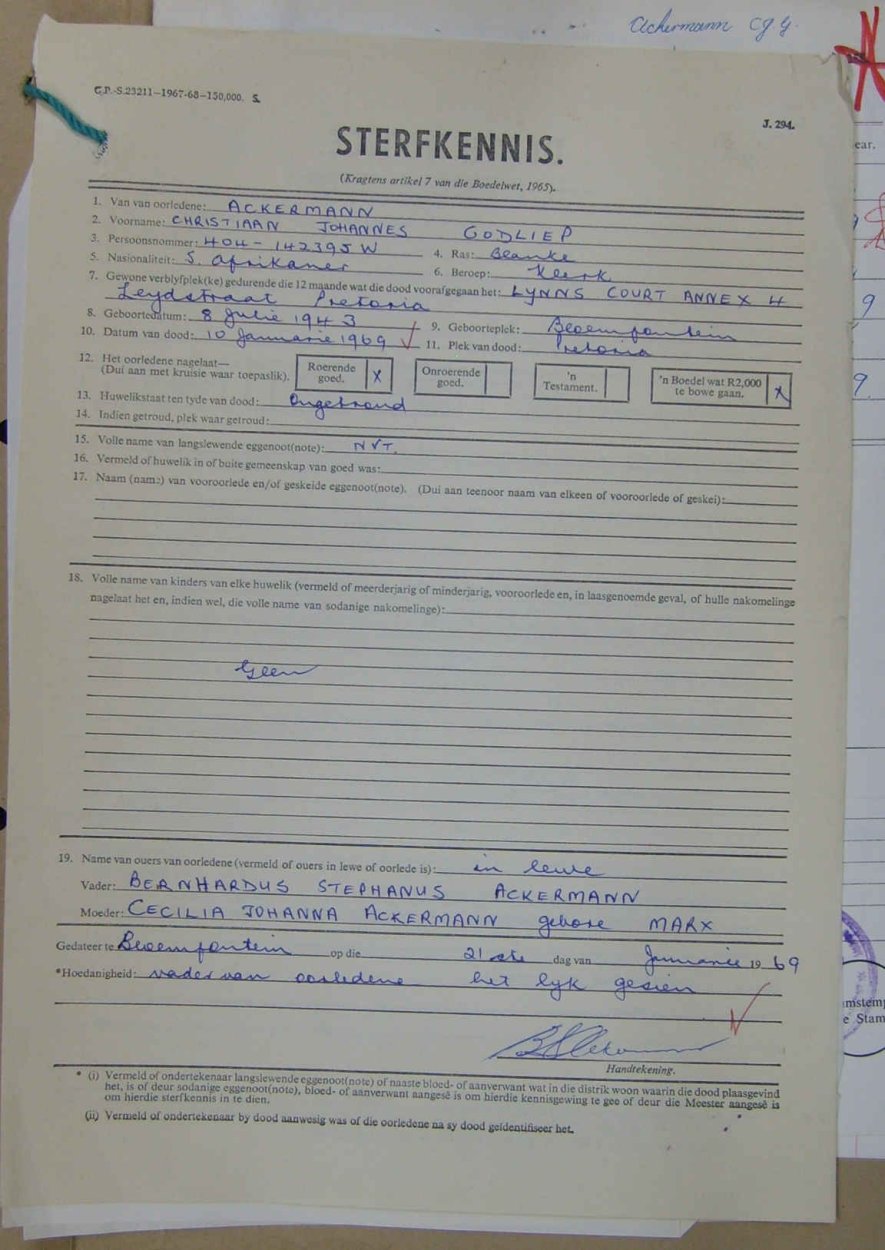 Ackermann CJG
G.P.-S.23211—1967-68—150,000. S.
J. 294.
STERFKENNIS.
(Kragtens artikel 7 van die Boedelwet, 1965).
1. Van van oorledene: ACKERMANN
2. Voorname: CHRISTIAAN JOHANNES GODLIEP
3. Persoonsnommer: 404-142395W 4. Ras: Blanke
5. Nasionaliteit: S. Afrikaner 6. Beroep: Klerk
7. Gewone verblyfplek(ke) gedurende die 12 maande wat die dood voorafgegaan het: LYNNS COURT ANNEX 4
Leydstraat Pretoria
8. Geboortedatum: 8 Julie 1943 9. Geboorteplek: Bloemfontein
10. Datum van dood: 10 Januarie 1969 11. Plek van dood: Pretoria
12. Het oorledene nagelaat—
(Dui aan met kruisie waar toepaslik).
Roerende goed. X
Onroerende goed.
'n Testament.
'n Boedel wat R2,000 te bowe gaan. X
13. Huwelikstaat ten tyde van dood: Ongetroud
14. Indien getroud, plek waar getroud:
15. Volle name van langslewende eggenoot(note): NVT.
16. Vermeld of huwelik in of buite gemeenskap van goed was:
17. Naam (name) van vooroorlede en/of geskeide eggenoot(note). (Dui aan teenoor naam van elkeen of vooroorlede of geskei):
18. Volle name van kinders van elke huwelik (vermeld of meerderjarig of minderjarig, vooroorlede en, in laasgenoemde geval, of hulle nakomelinge
nagelaat het en, indien wel, die volle name van sodanige nakomelinge):
Geen
19. Name van ouers van oorledene (vermeld of ouers in lewe of oorlede is): in lewe
Vader: BERNHARDUS STEPHANUS ACKERMANN
Moeder: CECILIA JOHANNA ACKERMANN gebore MARX
Gedateer te Bloemfontein op die 21ste dag van Januarie 1969
*Hoedanigheid: vader van oorledene het lyk gesien
Handtekening.
* (i) Vermeld of ondertekenaar langslewende eggenoot(note) of naaste bloed- of aanverwant wat in die distrik woon waarin die dood plaasgevind
het, is of deur sodanige eggenoot(note), bloed- of aanverwant aangesê is om hierdie kennisgewing te gee of deur die Meester aangesê is
om hierdie sterfkennis in te dien.
(ii) Vermeld of ondertekenaar by dood aanwesig was of die oorledene na sy dood geïdentifiseer het.
ear.
9
9
mstemp
e Stam